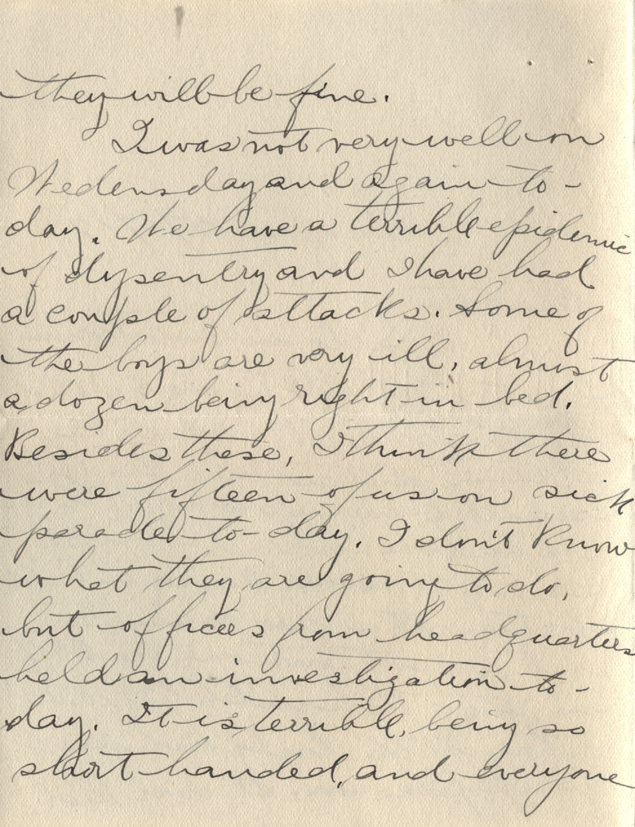 they will be fine.
I was not very well on
Wedensday and again to-
day. We have a terrible epidemic
of dysentry and I have had
a couple of attacks. Some of
the boys are very ill, almost
a dozen being right in bed.
Besides these, I think there
were fifteen of us on sick
parade to-day. I don't know
what they are going to do,
but officers from headquarters
held an investization to-
day. It is terrible, being so
short handed, and everyone